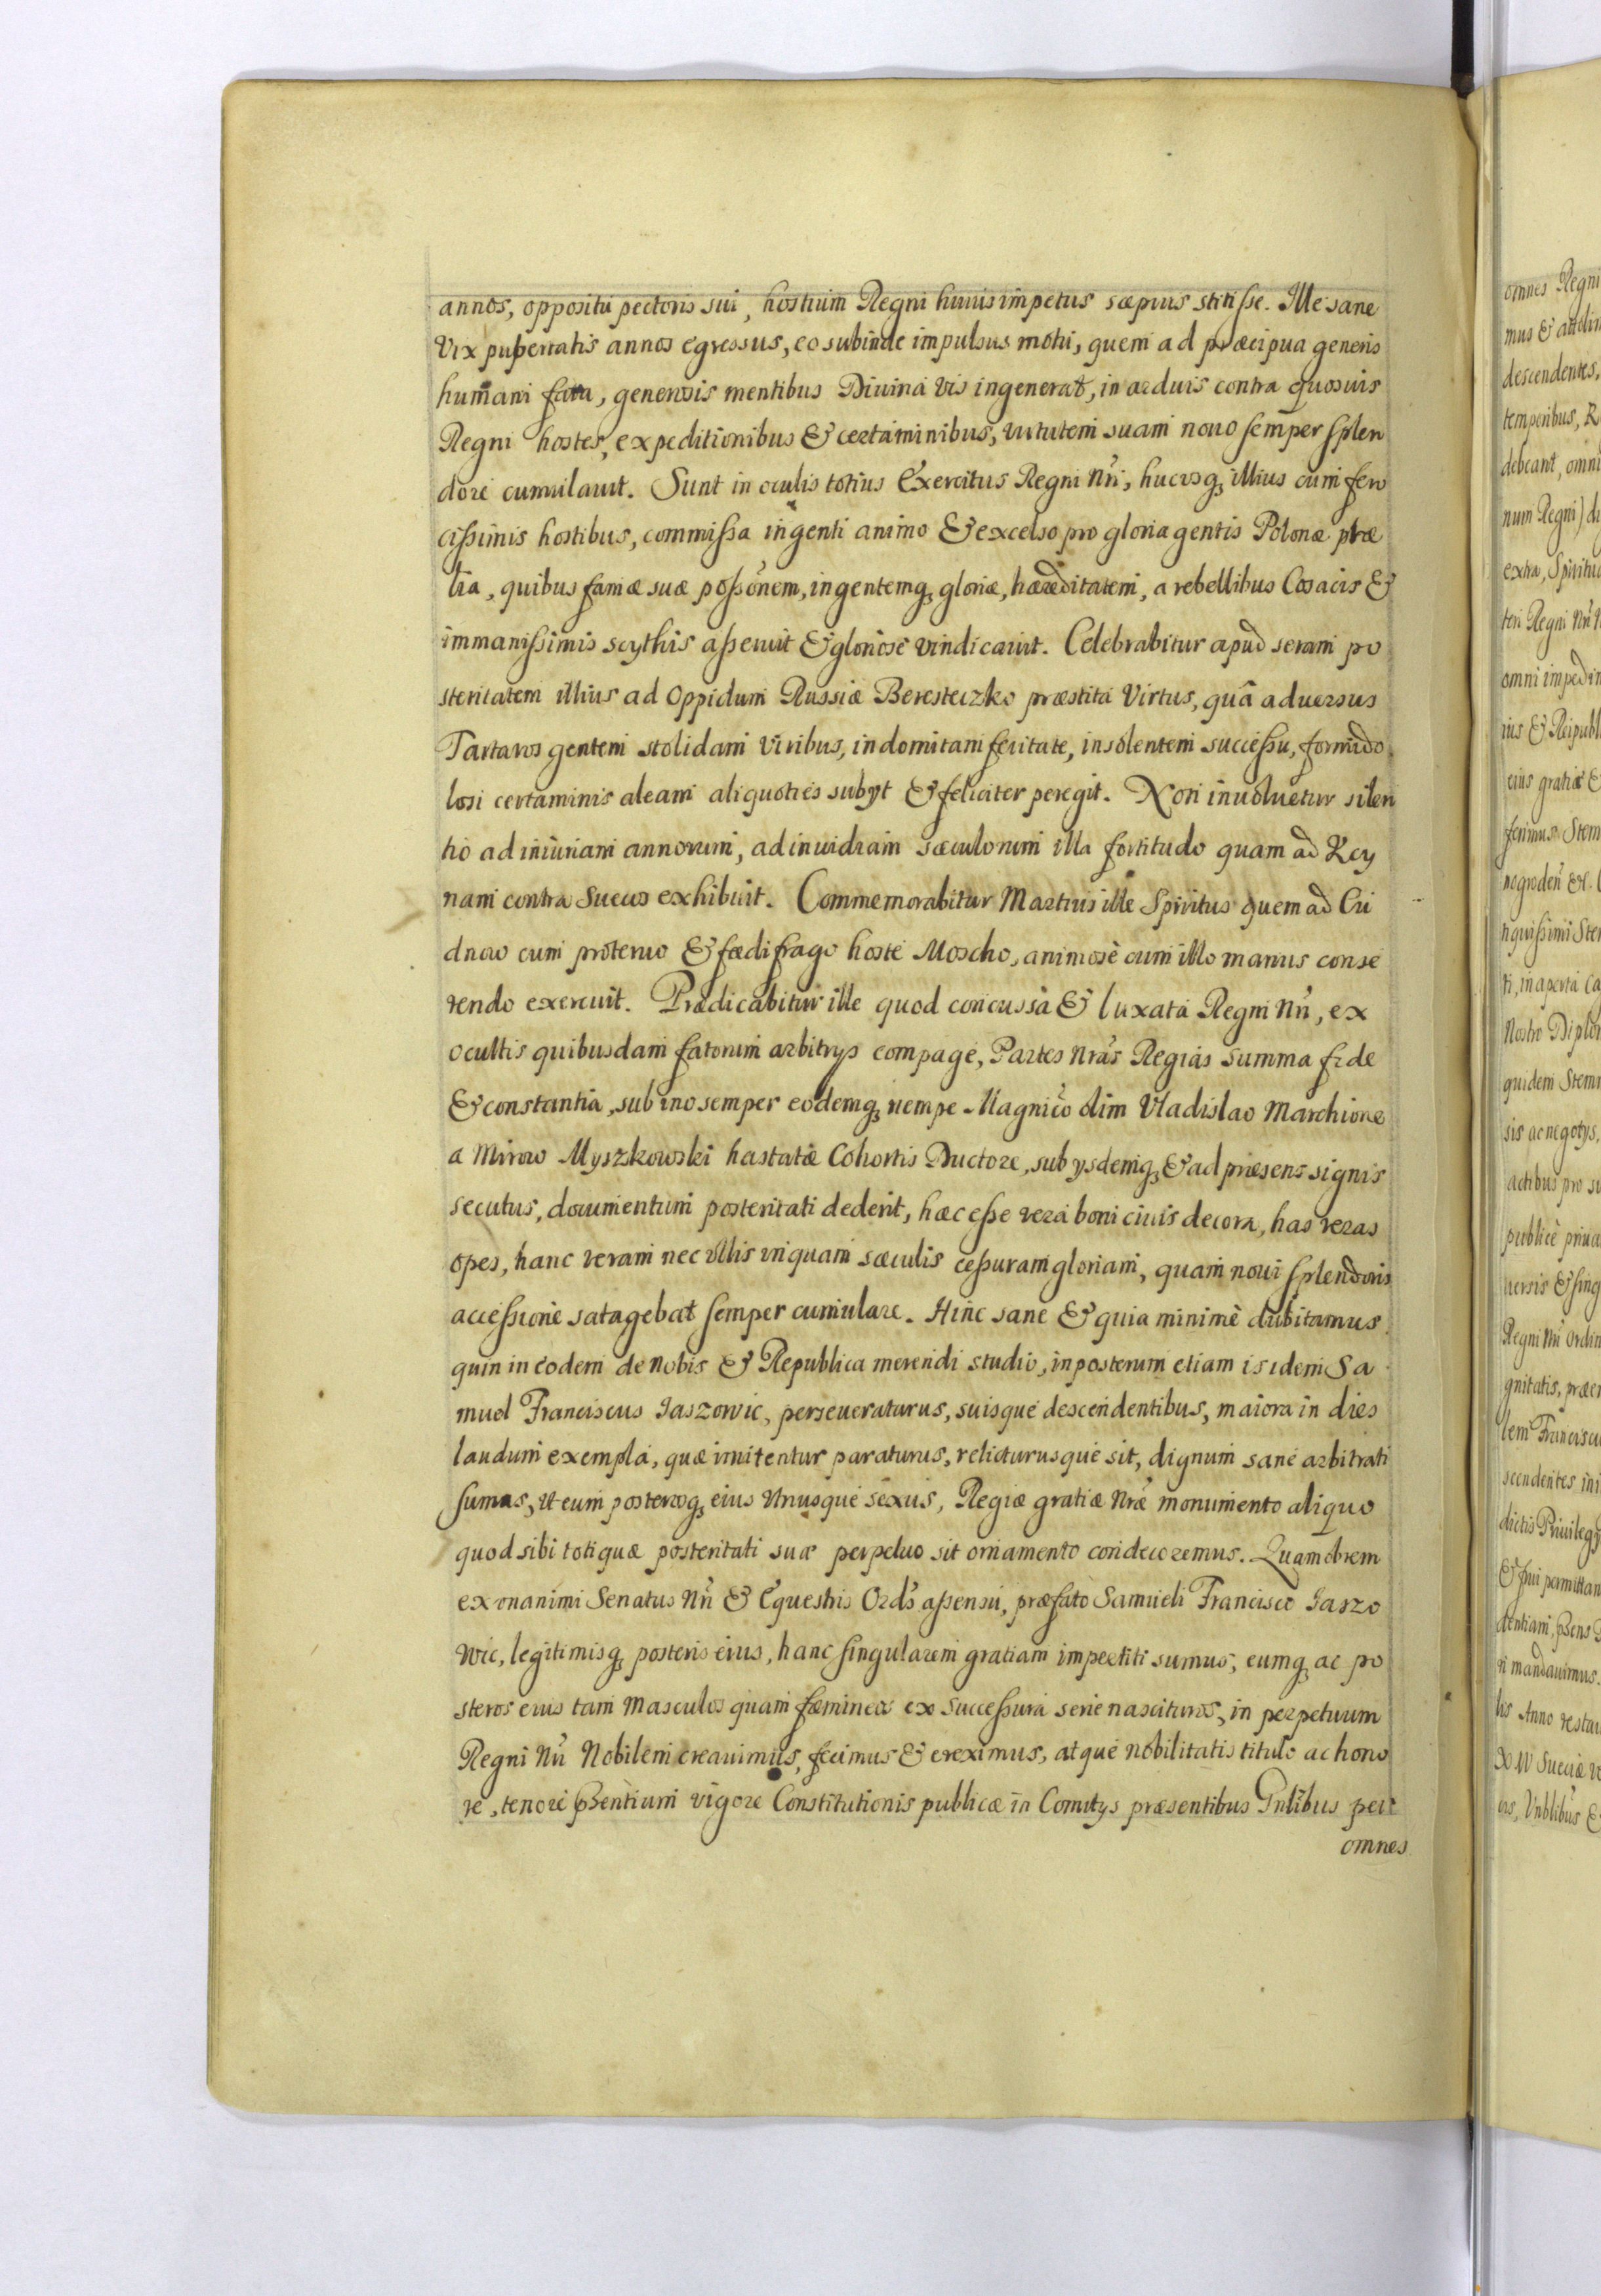 annos, oppositu pectoris sui, hostium Regni huius impetus sæpius stitisse. Ille sane
vix pubertatis annos egressus, eo subinde impulsus motu, quem ad præcipua generis
humani fata, generosis mentibus Diuina vis ingenerat, in arduis contra quosuis
Regni hostes, expeditionibus & certaminibus, virtutem suam nouo semper splen
dore cumulauit. Sunt in oculis totius Exercitus Regni Nri, hucusq, illius cum fero
cissimis hostibus, commissa ingenti animo & excelso pro gloria gentis Polonæ præ
lia, quibus famæ suæ possonem, ingentemq, gloriæ, hæreditatem, a rebellibus Cosacis &
immanissimis scythis asseruit & gloriose vindicauit. Celebrabitur apud seram po
steritatem illius ad Oppidum Russiæ Beresteczko præstita Virtus, quâ aduersus
Tartaros gentem stolidam viribus, indomitam feritate, insolentem successu, formido
losi certaminis aleam aliquoties subyt & feliciter peregit. Non inuoluetur silen
tio ad iniuriam annorum, ad inuidiam sæculorum illa fortitudo quam ad Key
nam contra Suecos exhibuit. Commemorabitur Martius ille Spiritus quem ad Cu
dnow cum proteruo & fædifrago hoste Moscho, animosè cum illo manus conse
rendo exercuit. Prædicabitur ille quod concussa & luxata Regni Nri, ex
ocultis quibusdam fatorum arbitrys compage, Partes Nras Regias summa fide
& constantia, sub uno semper eodemq, nempe Magnico olim Vladislao Marchione
a Mirow Myszkowski hastatæ Cohortis Ductore, sub ysdemq, & ad præsens signis
secutus, documentum posteritati dederit, hæc esse vera boni ciuis decora, has veras
opes, hanc veram nec vllis vnquam sæculis cessuram gloriam, quam noui splendoris
accessione satagebat semper cumulare. Hinc sane & quia minimè dubitamus
quin in eodem de nobis & Republica merendi studio, in posterum etiam is idem Sa
muel Franciscus Jaszowic, perseueraturus, suisque descendentibus, maiora in dies
laudum exempla, quæ imitentur paraturus, relicturusque sit, dignum sane arbitrati
sumus, vt eum posterosq, eius Vtriusque sexus, Regiæ gratiæ Nræ monumento aliquo
quod sibi totiquæ posteritati suæ perpetuo sit ornamento condecoremus. Quamobrem
ex vnanimi Senatus Nri & Equestris Ordis assensu, præfato Samueli Francisco Jaszo
wic, legitimisq, posteris eius, hanc singularem gratiam impertiti sumus, eumq, ac po
steros eius tam Masculos quam fæmineos ex successura serie nascituros, in perpetuum
Regni Nri Nobilem creauimus, fecimus & ereximus, atque nobilitatis titulo ac hono
re, tenore psentium vigore Constitutionis publicæ in Comitys præsentibus Gnlibus per
omnes